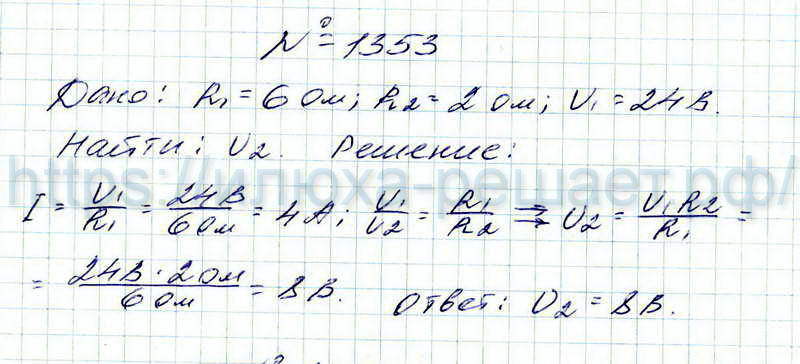 № = 1353
Дано: R₁ = 6 Ом; R₂ = 2 Ом; U₁ = 24 В.
Найти: U₂. Решение:
https://илюха-решает.рф/
I = U₁/R₁ = 24В/6 Ом = 4 А; U₁/U₂ = R₁/R₂ ⇒ U₂ = U₁R₂/R₁ =
= 24В · 2 Ом/6 Ом = 8 В. Ответ: U₂ = 8 В.